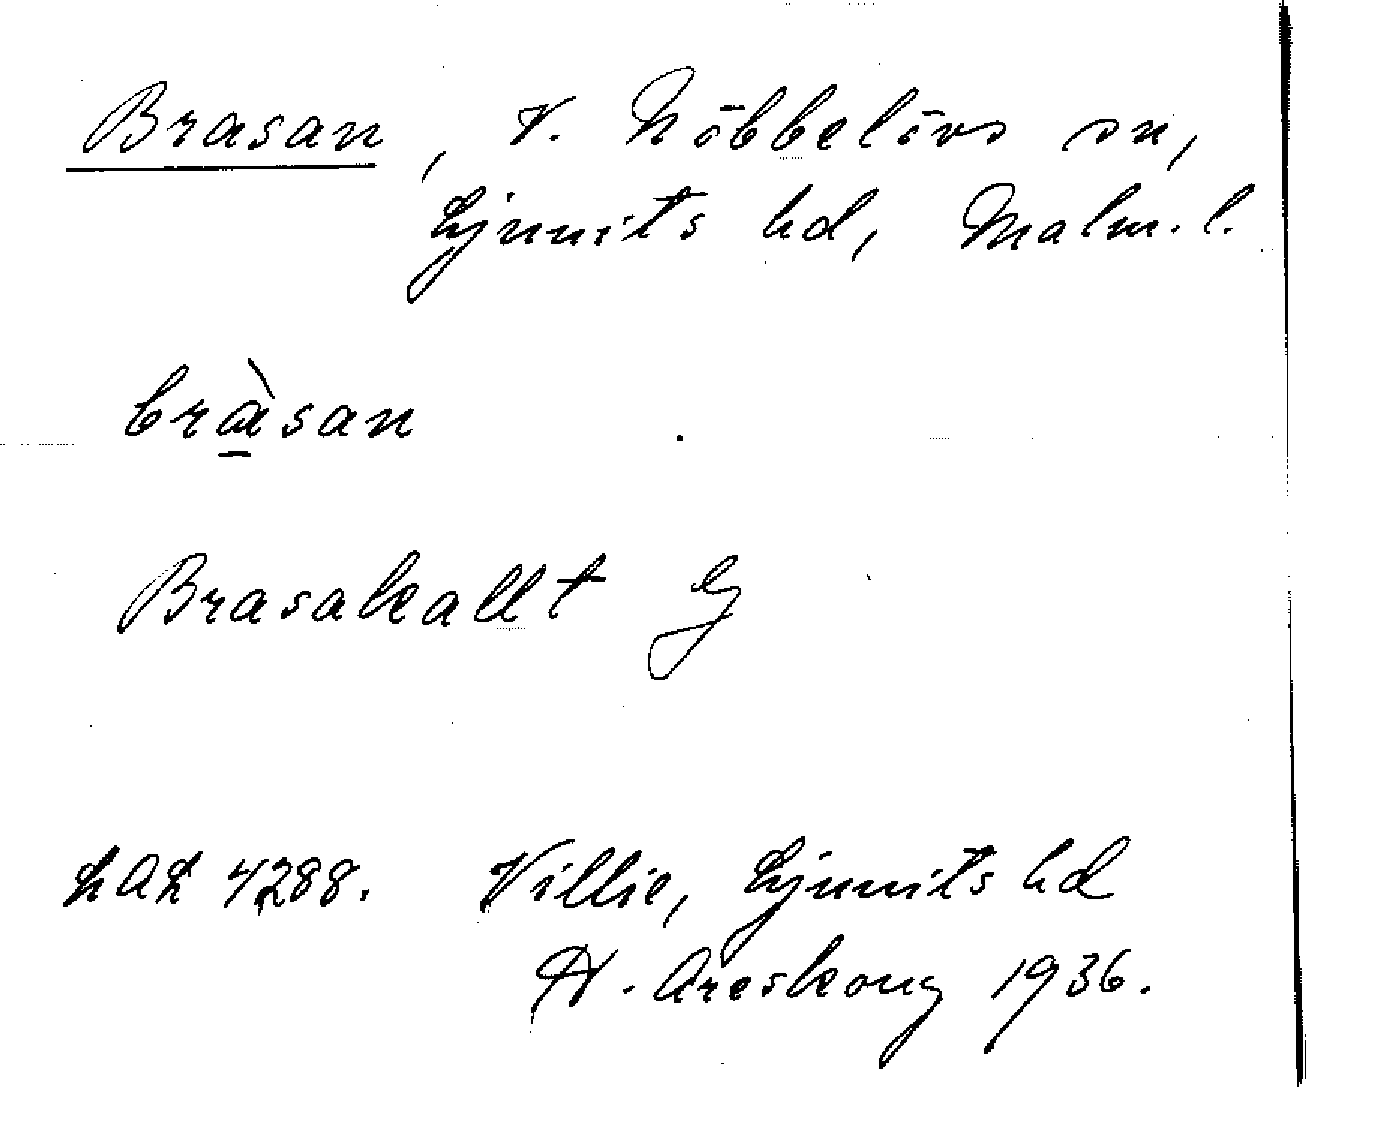 Brasan, V. Nöbbelövs sn,
Ljunits hd, Malm. l.
bràsan
Brasakallt Ej
LAL 4288. Villie, Ljunits hd
H. Areskoug 1936.